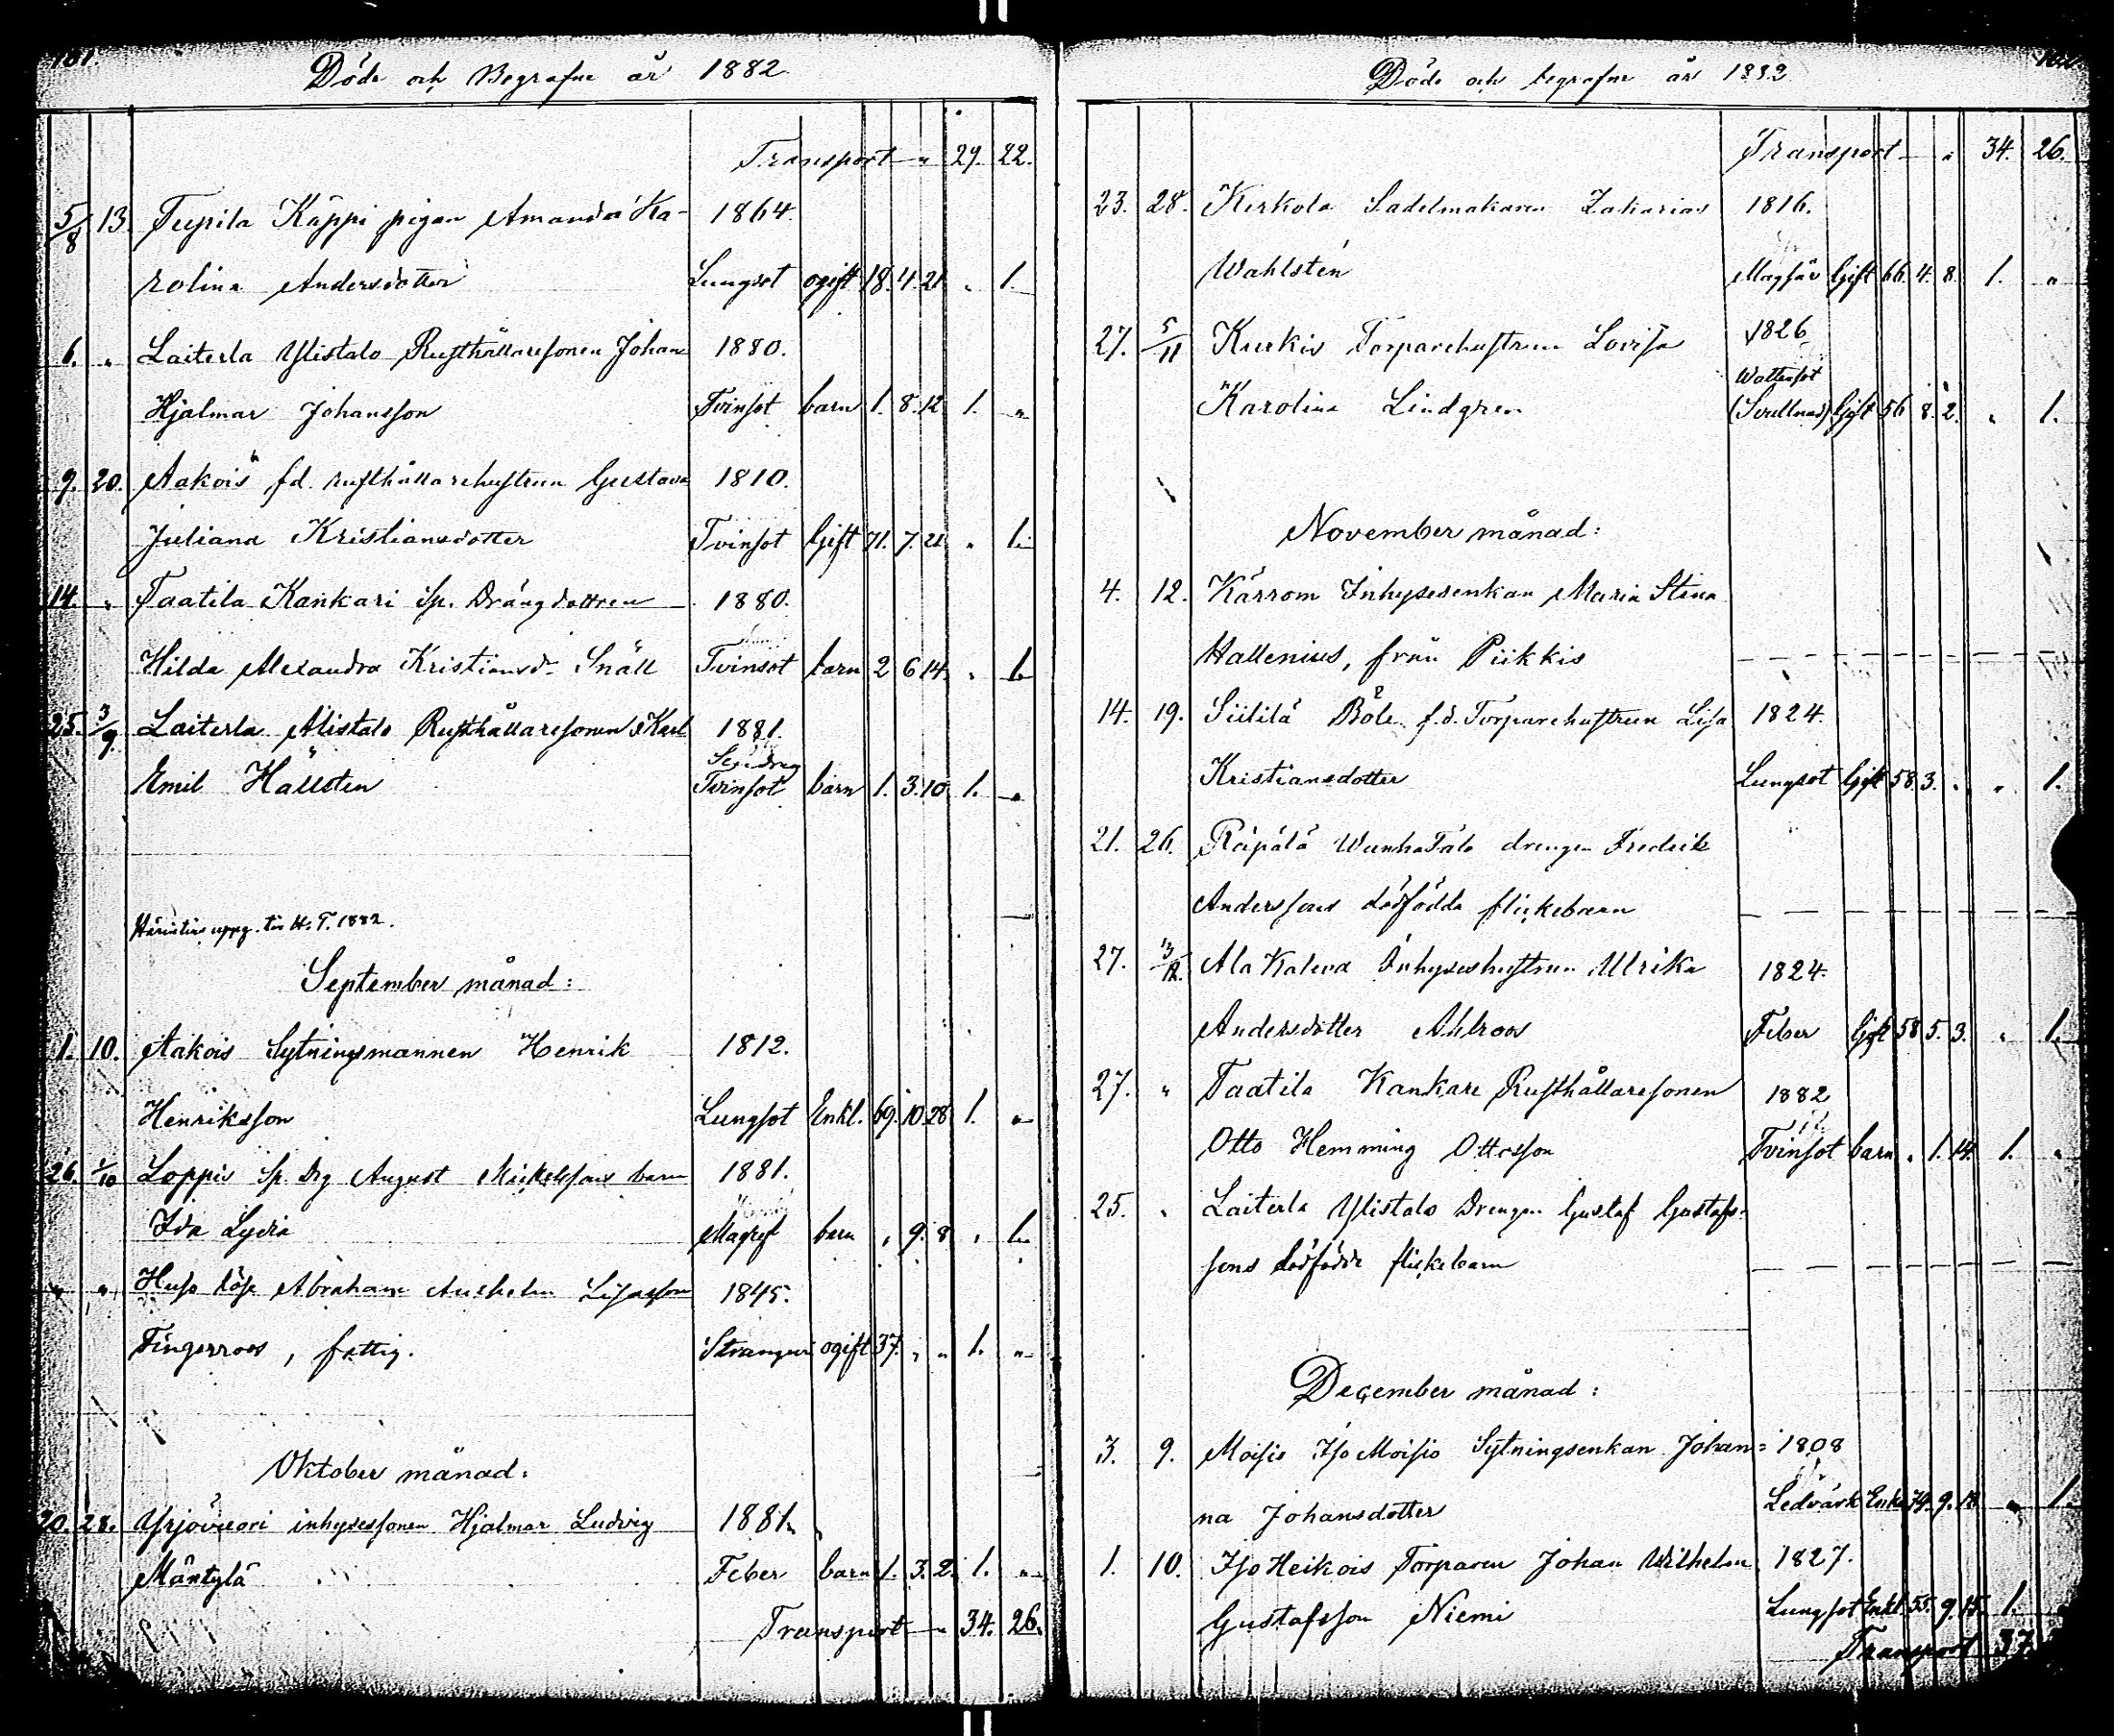 181.
Döde och Begrafne år 1882
Transport " 29. 22.
5/8 13. Tupila Käppi pigan Amanda Ka- 1864.
rolina Andersdotter Lungsot ogift 18. 4. 21 " 1.
6. " Laiterla Ylistalo Rusthållaresonen Johan 1880.
Hjalmar Johansson Tvinsot barn 1. 8. 12 1. "
9. 20. Aakois fd. rusthållarehustrun Gustava 1810.
Juliana Kristiansdotter Tvinsot Gift 71. 7. 21 " 1.
14. " Taatila Kankari Sp. Drängdottren 1880.
Hilda Alexandra Kristiansdr Snäll Tvinsot barn 2 6 14. " 1.
25. 3/9. Laiterla Alistalo Rusthållaresonen Karl 1881.
Emil Hällsten Tvinsot barn 1. 3. 10 1. "
Härintills uppg. till H. T. 1882.
September månad:
1. 10. Aakois Sytningsmannen Henrik 1812.
Henriksson Lungsot Enkl. 69. 10. 28 1. "
26. 1/10 Loppis Sp. Drg August Mickelssons barn 1881.
Ida Lydia barn " 9. 8 " 1.
" " Huso lösk Abraham Anshelm Lisasson 1845.
Fingerroos, fattig. ogift 37. " " 1. "
Oktober månad:
20. 28. Yrjövuori inhysessonen Hjalmar Ludvig 1881.
Mäntylä Feber barn 1. 3. 2. 1. "
Transport " 34. 26.
Döde och begrafne år 1882
Transport " 34. 26.
23. 28. Kerkola Sadelmakaren Zakarias 1816.
Wahlstén Gift 66. 4. 8. 1. "
27. 5/11 Kurkis Torparehustrun Lovisa 1826
Wattensot
Karolina Lindgren (Svullnad) Gift 56 8. 2. " 1.
November månad:
4. 12. Kärrom Inhysesenkan Maria Stina
Hallenius, från Piikkis
14. 19. Siililä Böle f.d. Torparehustrun Lisa 1824.
Kristiansdotter Lungsot Gift 58. 3. " " 1.
21. 26. Räpälä WanhaTalo drengen Fredrik
Anderssons dödfödda flickebarn
27. 3/12. Ala Kaleva Inhyseshustrun Ulrika 1824.
Andersdotter Ahlroos Feber Gift 58 5. 3. " 1.
27. " Taatila Kankare Rusthållaresonen 1882
Otto Hemming Ottosson Tvinsot barn " 1. 14. 1. "
25. " Laiterla Ylistalo Drengen Gustaf Gustafs-
sons dödfödda flickebarn
December månad:
3. 9. Moisio Iso Moisio Sytningsenkan Johan= 1808
na Johansdotter Ledvärk Enka 74. 9. 18. " 1.
1. 10. Iso Heikois Torparen Johan Wilhelm 1827.
Gustafsson Niemi Lungsot Enkl 55. 9. 15. 1.
Transport 37.